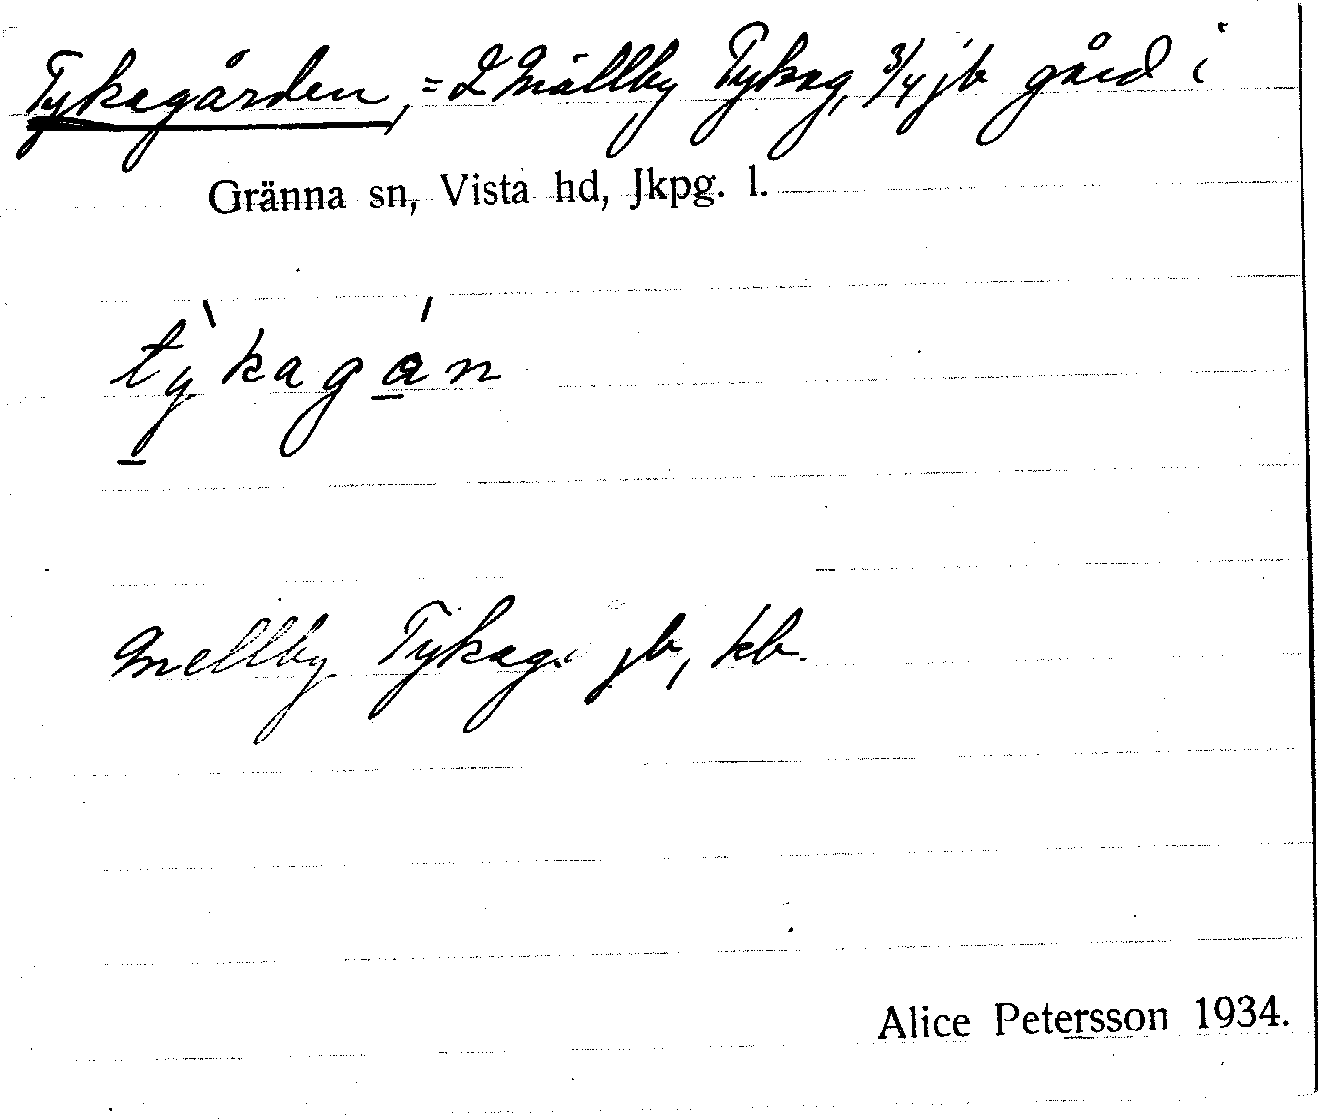 Tykagården, = 2 Mällby Tykag, 3/4 jb gård i
Gränna sn, Vista hd, Jkpg. l.
tỳkagán
Mellby Tykag. jb, kb.
Alice Petersson 1934.